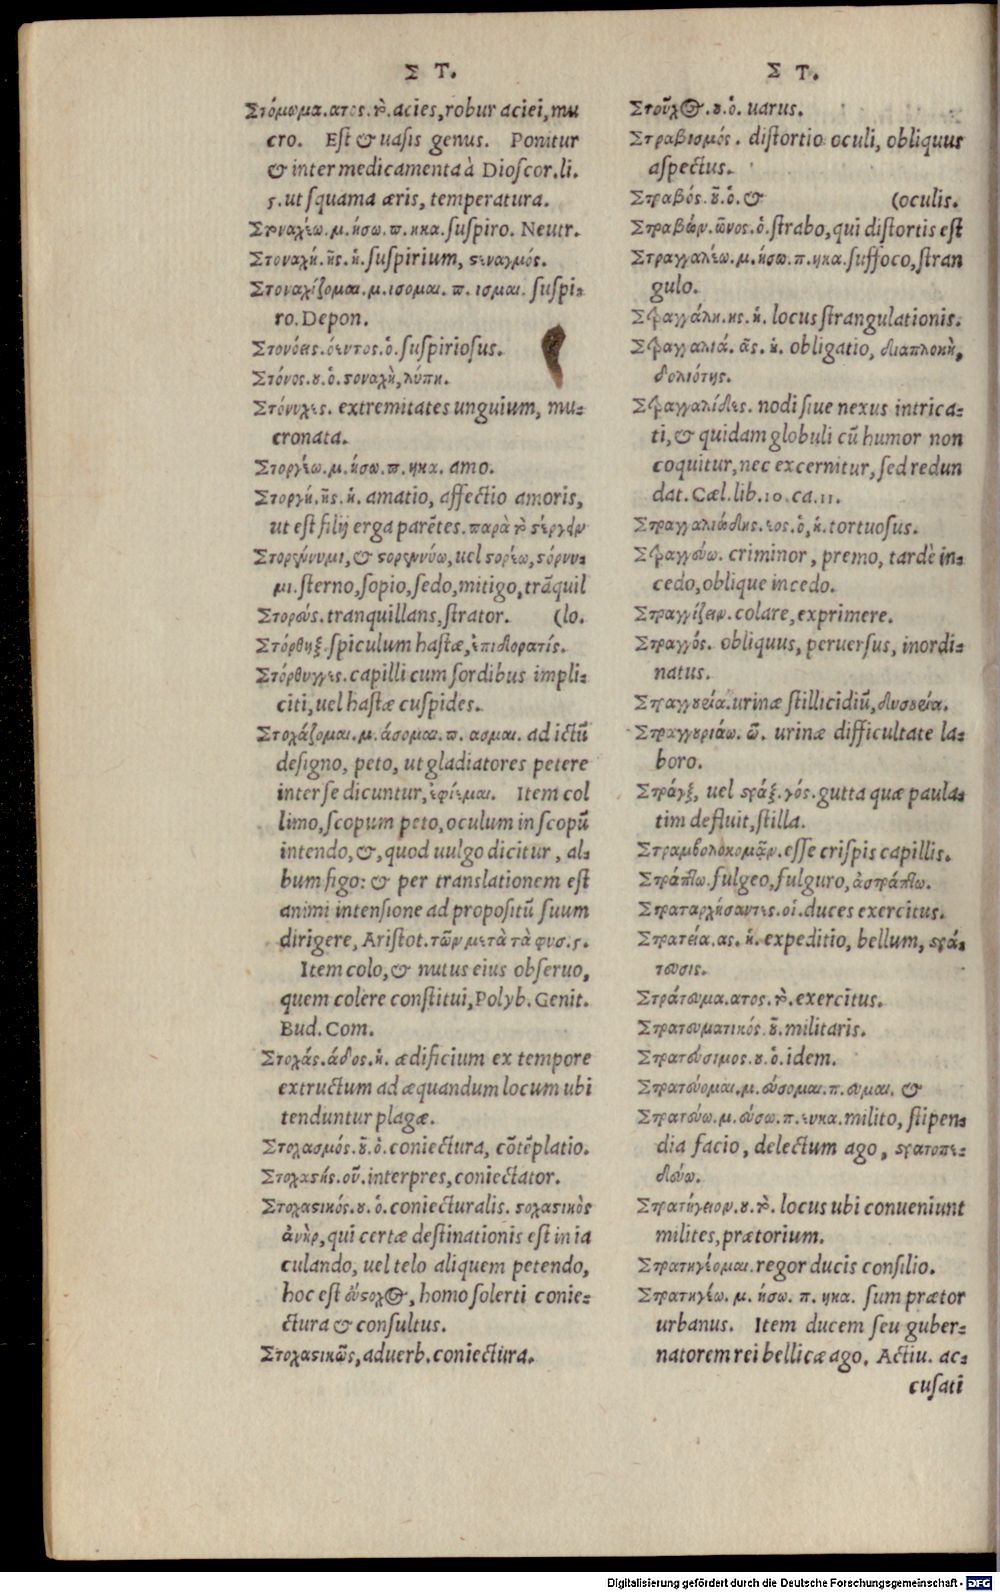 Σ Τ.
Στόμωμα.ατος.τὸ.acies,robur aciei,mu
cro. Est & uasis genus. Ponitur
& inter medicamenta à Dioscor.li.
5.ut squama æris, temperatura.
Στοναχέω.μ.ήσω.π.ηκα.suspiro. Neutr.
Στοναχή.ῆς.ἡ.suspirium, στεναγμός.
Στοναχίζομαι.μ.ισομαι.π.ισμαι. suspi-
ro.Depon.
Στονόεις.όεντος.ὁ.suspiriosus.
Στόνος.ου.ὁ.στοναχὴ,λύπη.
Στόνυχες. extremitates unguium, mu-
cronata.
Στοργέω.μ.ήσω.π.ηκα. amo.
Στοργή.ῆς.ἡ. amatio, affectio amoris,
ut est filij erga parẽtes.παρὰ τὸ στέργειν
Στορέννυμι,& στορεννύω,uel στορέω,στόρνυ-
μι.sterno,sopio,sedo,mitigo,trãquil
Στορεύς.tranquillans,strator. (lo.
Στόρθηξ.spiculum hastæ,ἐπιδορατίς.
Στόρθυγγες.capilli cum sordibus impli-
citi,uel hastæ cuspides.
Στοχάζομαι.μ.άσομαι.π.ασμαι. ad ictũ
designo, peto, ut gladiatores petere
inter se dicuntur,ἐφίεμαι. Item col
limo,scopum peto,oculum in scopũ
intendo,&,quod uulgo dicitur, al-
bum figo: & per translationem est
animi intensione ad propositũ suum
dirigere, Aristot.τῶν μετὰ τὰ φυσ.ς.
Item colo,& nutus eius obseruo,
quem colere constitui,Polyb.Genit.
Bud.Com.
Στοχάς.άδος.ἡ. ædificium ex tempore
extructum ad æquandum locum ubi
tenduntur plagæ.
Στοχασμός.οῦ.ὁ.coniectura, cõtẽplatio.
Στοχαστής.οῦ.interpres,coniectator.
Στοχαστικός.ου.ὁ.coniecturalis. στοχαστικὸς
ἀνὴρ,qui certæ destinationis est in ia
culando, uel telo aliquem petendo,
hoc est εὔστοχος, homo solerti conie-
ctura & consultus.
Στοχαστικῶς,aduerb.coniectura.
Σ Τ.
Στοῦχος.ου.ὁ.uarus.
Στραβισμός. distortio oculi, obliquus
aspectus.
Στραβός.οῦ.ὁ.& (oculis.
Στραβών.ῶνος.ὁ.strabo,qui distortis est
Στραγγαλέω.μ.ήσω.π.ηκα.suffoco,stran
gulo.
Στραγγάλη.ης.ἡ. locus strangulationis.
Στραγγαλιά.ᾶς.ἡ. obligatio, διαπλοκὴ,
δολιότης.
Στραγγαλίδες. nodi siue nexus intrica-
ti,& quidam globuli cũ humor non
coquitur,nec excernitur,sed redun
dat.Cæl.lib.10.ca.11.
Στραγγαλιώδης.εος.ὁ,ἡ.tortuosus.
Στραγγεύω. criminor, premo, tardè in-
cedo,oblique incedo.
Στραγγίζειν.colare,exprimere.
Στραγγός. obliquus, peruersus, inordi-
natus.
Στραγγουεία.urinæ stillicidiũ,δυσουεία.
Στραγγουριάω.ῶ. urinæ difficultate la-
boro.
Στράγξ, uel στράξ.γός.gutta quæ paula-
tim defluit,stilla.
Στραμβολοκομᾷν.esse crispis capillis.
Στράπτω.fulgeo,fulguro,ἀστράπτω.
Στραταρχήσαντες.οἱ.duces exercitus.
Στρατεία.ας.ἡ.expeditio, bellum, στρά-
τευσις.
Στράτευμα.ατος.τὸ.exercitus.
Στρατευματικός.οῦ.militaris.
Στρατεύσιμος.ου.ὁ.idem.
Στρατεύομαι.μ.εύσομαι.π.ευμαι. &
Στρατεύω.μ.εύσω.π.ευκα.milito, stipen-
dia facio, delectum ago, στρατοπε-
δεύω.
Στρατήγειον.ου.τὸ. locus ubi conueniunt
milites,prætorium.
Στρατηγέομαι.regor ducis consilio.
Στρατηγέω. μ. ήσω. π. ηκα. sum prætor
urbanus. Item ducem seu guber-
natorem rei bellicæ ago. Actiu. ac-
cusati
Digitalisierung gefördert durch die Deutsche Forschungsgemeinschaft - DFG